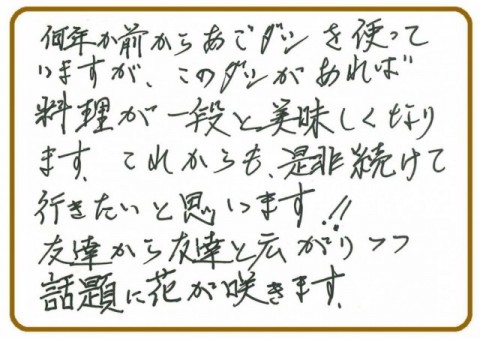 何年か前からあごダシを使って
いますが、このダシがあれば
料理が一段と美味しくなり
ます。これからも、是非続けて
行きたいと思います!!
友達から友達と広がりつつ
話題に花が咲きます。